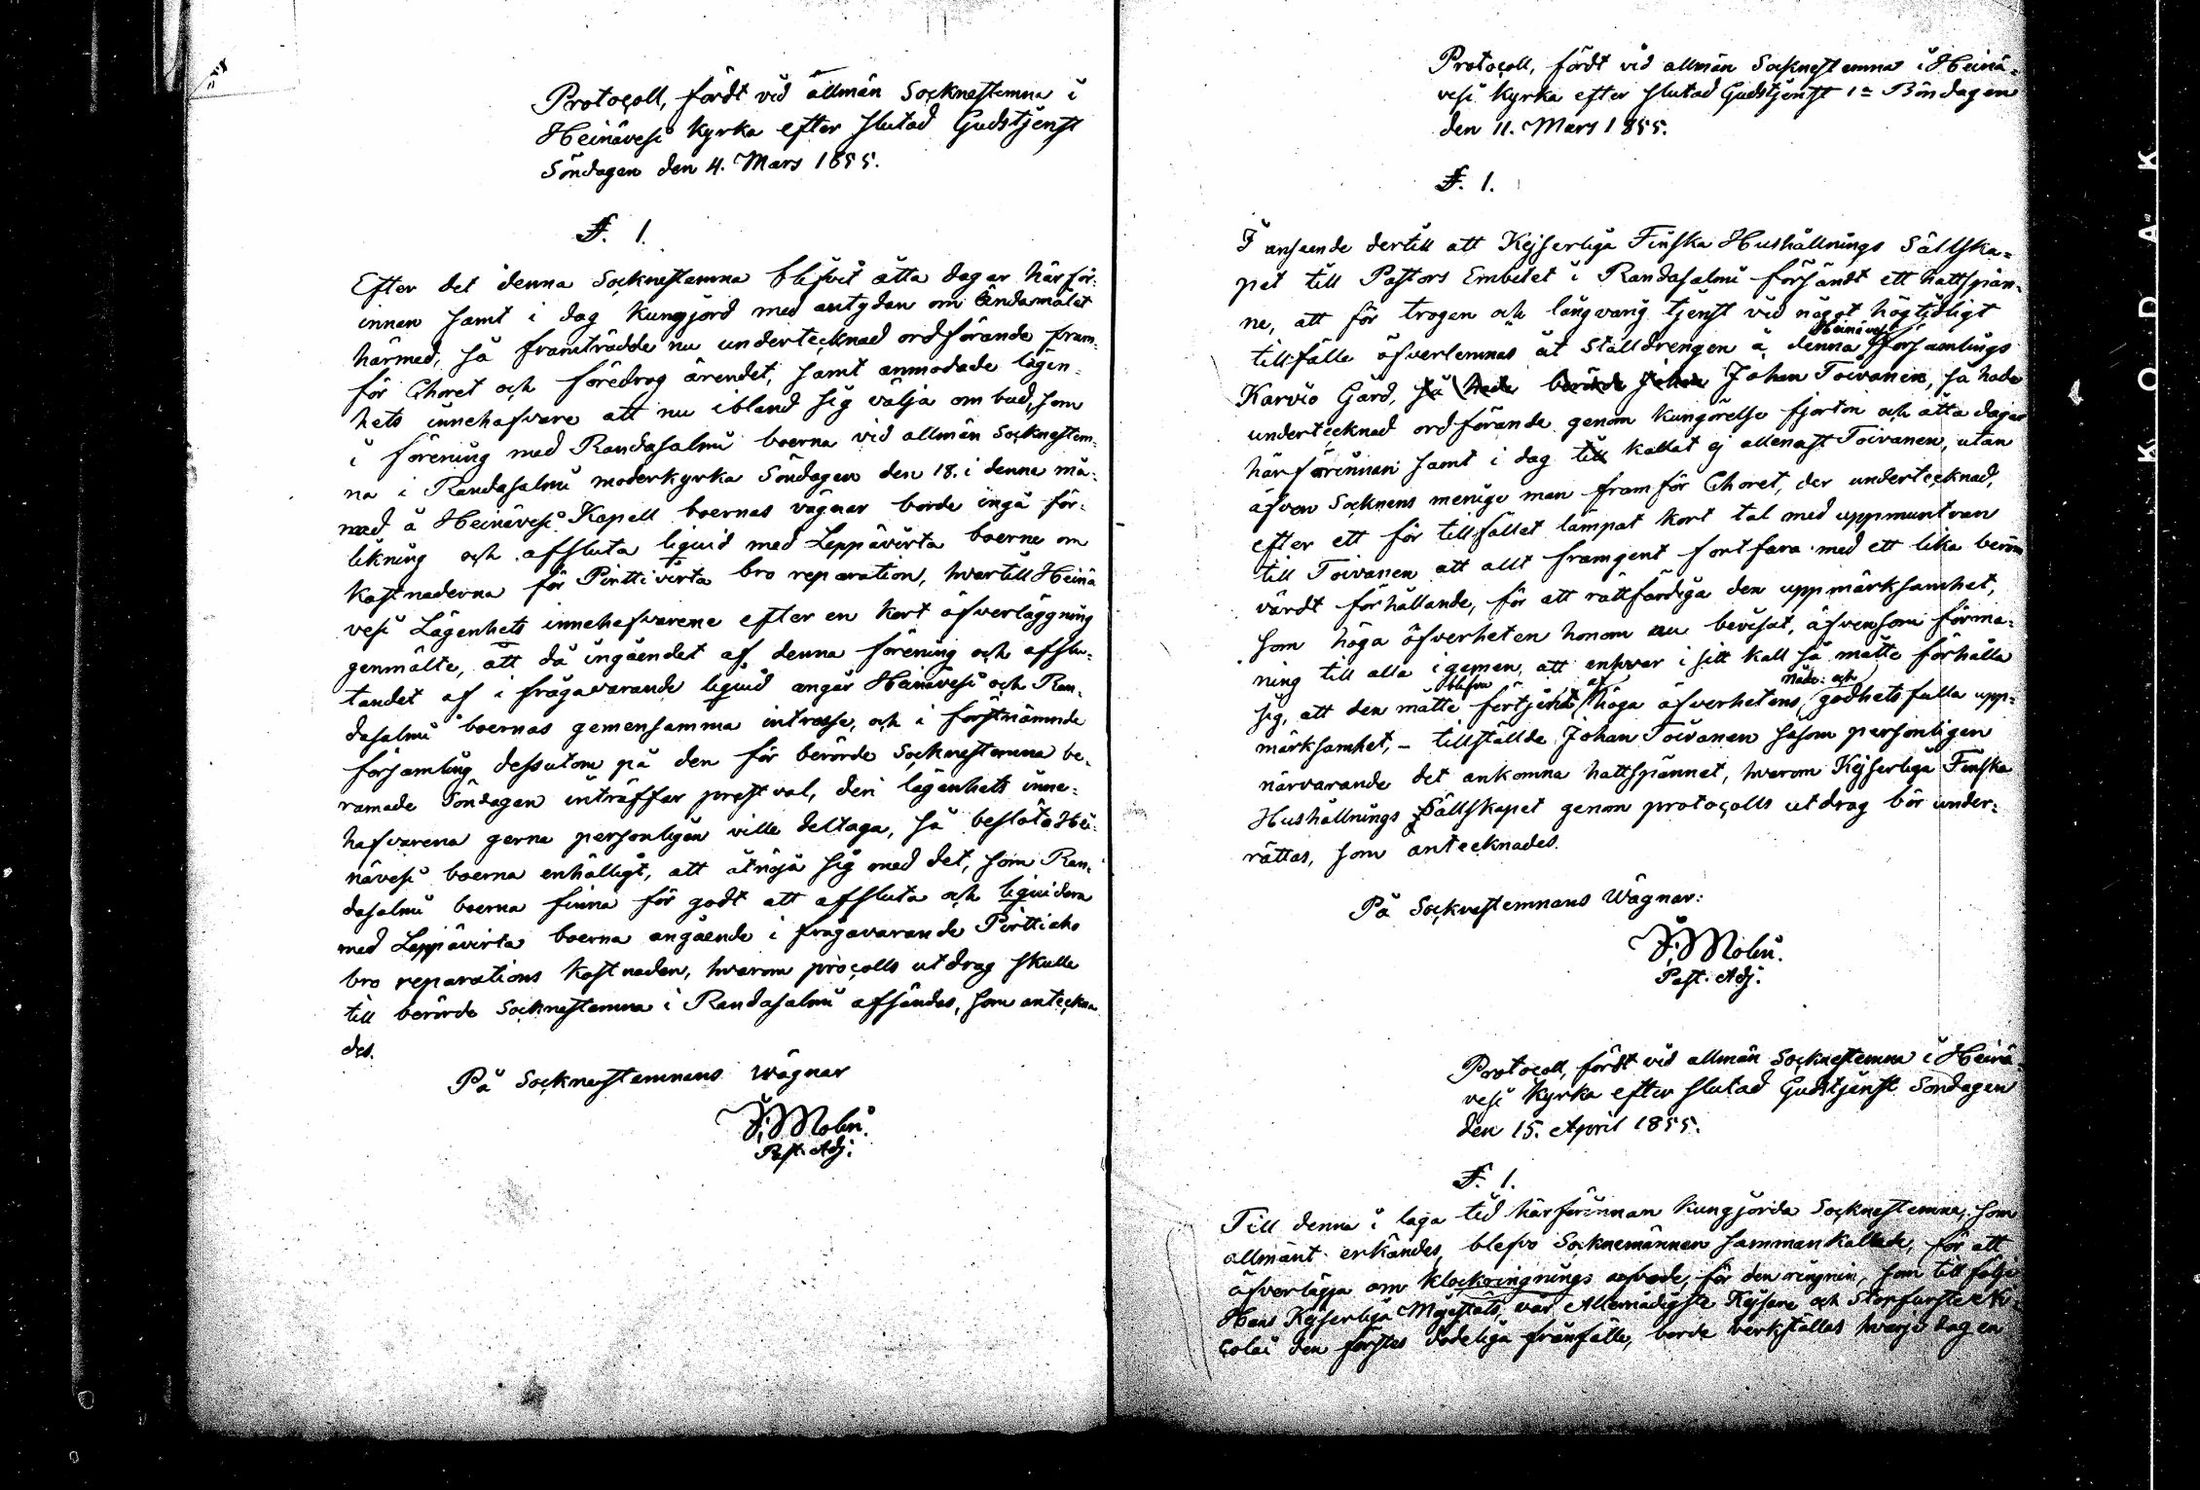 Protocoll, fördt vid allmän Socknestemna i
Heinävesi Kyrka efter slutad Gudstjenst
Söndagen den 4. Mars 1855.
§. 1.
Efter det denna Socknestemna blifvit åtta dagar härför-
innan samt i dag kungjord med antydan om ändamålet
härmed, så framträdde nu undertecknad ordförande fram-
för Choret och föredrog ärendet, samt anmodade lägen-
hets innehafvare att nu ibland sig välja ombud, som
i förening med Randasalmi boerna vid allmän Socknestem-
na i Randasalmi moderkyrka Söndagen den 18. i denna må-
nad å Heinävesi Kapell boernas vägnar borde ingå för-
likning och afsluta liquid med Leppävirta boerne om
kostnaderna för Pirttivirta bro reparation, hvartill Heinä
vesi Lägenhets innehafvarene efter en kort öfverläggning
genmälte, att då ingåendet af denna förening och afslu-
tandet af i frågavarande liquid angår Heinävesi och Ran-
dasalmi boernas gemensamma intresse, och i förstnämnde
församling dessutom på den för berörde Socknestemna be-
ramade Söndagen inträffar prestval, deri lägenhets inne-
hafvarena gerna personligen ville deltaga, så beslöto Hei-
nävesi boerna enhälligt, att åtnöja sig med det, som Ran-
dasalmi boerna finna för godt att afsluta och liquidera
med Leppävirta boerna angående i frågavarande Pirttiaho
bro reparations kostnaden, hvarom procolls utdrag skulle
till berörde Socknestemna i Randasalmi afsändas, som anteckna
des.
På Socknestemnans Wägnar
F. Molin.
Past. Adj.
Protocoll, fördt vid allmän Socknestemna i Heinä-
vesi Kyrka efter slutad Gudstjenst 1a Böndagen
den 11. Mars 1855.
§. 1.
I anseende dertill att Kejserliga Finska Hushållnings Sällska-
pet till Pastors Embetet i Randasalmi försändt ett hattspän-
ne, att för trogen och långvarig tjenst vid något högtidligt
tillfälle öfverlemnas åt Ställdrengen å denna Heinävesi församlings
Karvio Gård, så hade berörde Johan Johan Toivanen, så hade
undertecknad ordförande genom kungörelse fjorton och åtta dagar
härförinnan samt i dag till kallat ej allenast Toivanen, utan
äfven Socknens menige man framför Choret, der undertecknad,
efter ett för tillfället lämpat kort tal med uppmuntran
till Toivanen att allt framgent fortfara med ett lika beröm
värdt förhållande, för att rättfärdiga den uppmärksamhet,
som höga öfverheten honom nu bevisat, äfvensom förma-
ning till alla igemen, att enhvar i sitt kall så måtte förhålla
sig, att den måtte blifva förtjent af höga öfverhetens nåde- och godhetsfulla upp-
märksamhet, – tillställde Johan Toivanen såsom personligen
närvarande det ankomna hattspännet, hvarom Kejserliga Finska
Hushållnings Sällskapet genom protocolls utdrag bör under-
rättas, som antecknades.
På Socknestemnans Wägnar:
F. Molin.
Past. Adj.
Protocoll, fördt vid allmän Socknestemna i Heinä-
vesi Kyrka efter slutad Gudstjenst Söndagen
den 15. April 1855.
§. 1.
Till denna i laga tid härförinnan kungjorda Socknestemna, som
allmänt erkändes, blefvo Socknemännen sammankallade, för att
öfverlägga om klockringnings arfvode, för den ringnin, som till följe
Hans Kejserliga Majestäts, vår Allernådigste Kejsare och Storfurste Ni-
colai den förstes dödeliga frånfälle, borde verkställas hvarje dag en